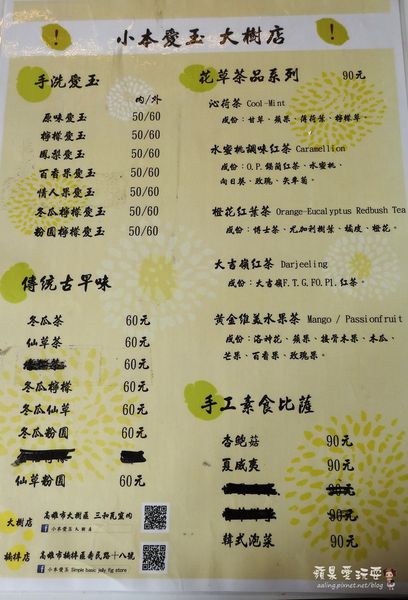 ! 小本愛玉 大樹店 !
手洗愛玉
內/外
原味愛玉 50/60
檸檬愛玉 50/60
鳳梨愛玉 50/60
百香果愛玉 50/60
情人果愛玉 50/60
冬瓜檸檬愛玉 50/60
粉圓檸檬愛玉 50/60
傳統古早味
冬瓜茶 60元
仙草茶 60元
60元
冬瓜檸檬 60元
冬瓜仙草 60元
冬瓜粉圓 60元
60元
仙草粉圓 60元
大樹店 高雄市大樹區 三和瓦窯內
小本愛玉大樹店
楠梓店 高雄市楠梓區壽民路十八號
小本愛玉 Simple basic jelly fig store
花草茶品系列 90元
沁荷茶 Cool-Mint
成份：甘草、蘋果、薄荷葉、檸檬草。
水蜜桃調味紅茶 Caramellion
成份：O.P.錫蘭紅茶、水蜜桃、
向日葵、玫瑰、矢車菊。
橙花紅葉茶 Orange-Eucalyptus Redbush Tea
成份：博士茶、尤加利樹葉、橘皮、橙花。
大吉嶺紅茶 Darjeeling
成份：大吉嶺F.T.G.FO.P1.紅茶。
黃金維美水果茶 Mango / Passionfruit
成份：洛神花、蘋果、接骨木果、木瓜、
芒果、百香果、玫瑰果。
手工素食比薩
杏鮑菇 90元
夏威夷 90元
90元
90元
韓式泡菜 90元
蘋果愛玩耍
aaling.pixnet.net/blog